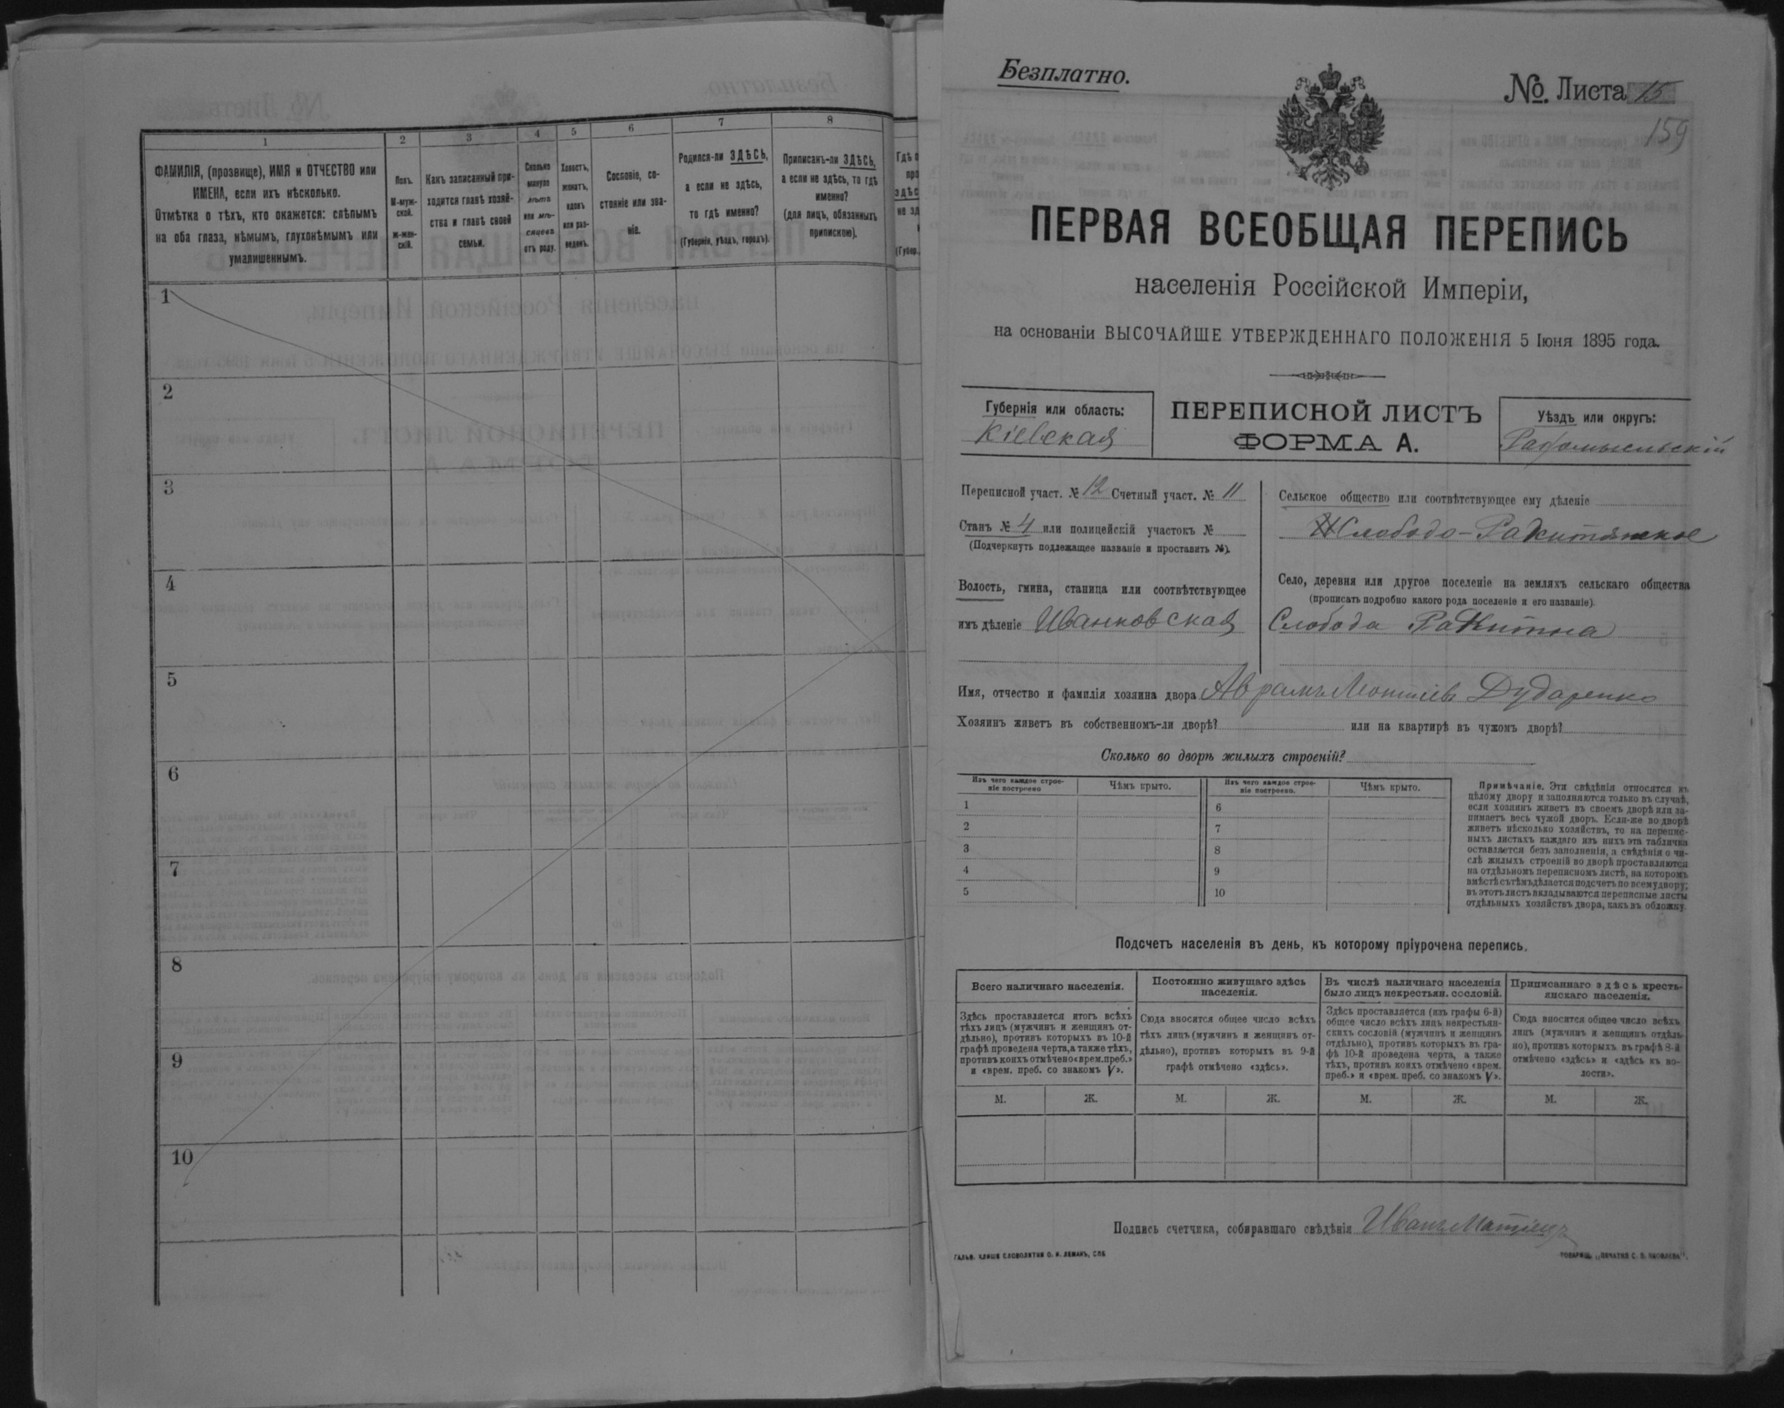 1
2
3
4
5
6
7
8
ФАМИЛІЯ, (прозвище), ИМЯ и ОТЧЕСТВО или
ИМЕНА, если ихъ нѣсколько.
Отмѣтка о тѣхъ, кто окажется: слѣпымъ
на оба глаза, нѣмымъ, глухонѣмымъ или
умалишеннымъ.
Полъ.
М-муж-
ской.
ж-жен-
скій.
Какъ записанный при-
ходится главѣ хозяй-
ства и главѣ своей
семьи.
Сколько
минуло
лѣтъ
или мѣ-
сяцевъ
отъ роду.
Холостъ,
женатъ,
вдовъ
или раз-
веденъ.
Сословіе, со-
стояніе или зва-
ніе.
Родился-ли ЗДѢСЬ,
а если не здѣсь,
то гдѣ именно?
(Губернія, уѣздъ, городъ).
Приписанъ-ли ЗДѢСЬ,
а если не здѣсь, то гдѣ
именно?
(для лицъ, обязанныхъ
припискою).
1
2
3
4
5
6
7
8
9
10
Безплатно.
№. Листа 15
159
ПЕРВАЯ ВСЕОБЩАЯ ПЕРЕПИСЬ
населенія Россійской Имперіи,
на основаніи ВЫСОЧАЙШЕ УТВЕРЖДЕННАГО ПОЛОЖЕНІЯ 5 Іюня 1895 года.
Губернія или область:
Кіевская
ПЕРЕПИСНОЙ ЛИСТЪ
ФОРМА А.
Уѣздъ или округъ:
Радомысльскій
Переписной участ. № 12 Счетный участ. № 11
Станъ № 4 или полицейскій участокъ №
(Подчеркнуть подлежащее названіе и проставить №).
Волость, гмина, станица или соотвѣтствующее
имъ дѣленіе Иванковская
Сельское общество или соотвѣтствующее ему дѣленіе
Слободо-Ракитянское
Село, деревня или другое поселеніе на земляхъ сельскаго общества
(прописать подробно какого рода поселеніе и его названіе).
Слобода Ракитна
Имя, отчество и фамилія хозяина двора Аврамъ Дударенко
Хозяинъ живетъ въ собственномъ-ли дворѣ? или на квартирѣ въ чужомъ дворѣ?
Сколько во дворѣ жилыхъ строеній?
Изъ чего каждое строе-
ніе построено
Чѣмъ крыто.
Изъ чего каждое строе-
ніе построено.
Чѣмъ крыто.
1
2
3
4
5
6
7
8
9
10
Примѣчаніе. Эти свѣдѣнія относятся къ
цѣлому двору и заполняются только въ случаѣ,
если хозяинъ живетъ въ своемъ дворѣ или за-
нимаетъ весь чужой дворъ. Если-же во дворѣ
живетъ нѣсколько хозяйствъ, то на перепис-
ныхъ листахъ каждаго изъ нихъ эта табличка
оставляется безъ заполненія, а свѣдѣнія о чи-
слѣ жилыхъ строеній во дворѣ проставляются
на отдѣльномъ переписномъ листѣ, на которомъ
вмѣстѣ съ тѣмъ дѣлается подсчетъ по всему двору;
въ этотъ листъ вкладываются переписные листы
отдѣльныхъ хозяйствъ двора, какъ въ обложку.
Подсчетъ населенія въ день, къ которому пріурочена перепись.
Всего наличнаго населенія.
Здѣсь проставляется итогъ всѣхъ
тѣхъ лицъ (мужчинъ и женщинъ от-
дѣльно), противъ которыхъ въ 10-й
графѣ проведена черта, а также тѣхъ,
противъ коихъ отмѣчено «врем. преб.»
и «врем. преб. со знакомъ V».
Постоянно живущаго здѣсь
населенія.
Сюда вносится общее число всѣхъ
тѣхъ лицъ (мужчинъ и женщинъ от-
дѣльно), противъ которыхъ въ 9-й
графѣ отмѣчено «здѣсь».
Въ числѣ наличнаго населенія
было лицъ некрестьян. сословій.
Здѣсь проставляется (изъ графы 6-й)
общее число всѣхъ лицъ некрестьян-
скихъ сословій (мужчинъ и женщинъ
отдѣльно), противъ которыхъ въ гра-
фѣ 10-й проведена черта, а также
тѣхъ, противъ коихъ отмѣчено «врем.
преб.» и «врем. преб. со знакомъ V».
Приписаннаго здѣсь кресть-
янскаго населенія.
Сюда вносится общее число всѣхъ
лицъ (мужчинъ и женщинъ отдѣль-
но), противъ которыхъ въ графѣ 8-й
отмѣчено «здѣсь» и «здѣсь въ во-
лости».
М. Ж. М. Ж. М. Ж. М. Ж.
Подпись счетчика, собиравшаго свѣдѣнія Иванъ
ГАЛЬВ. КЛИШЕ СЛОВОЛИТНИ О. И. ЛЕМАНЪ, СПБ
ТОВАРИЩ. „ПЕЧАТНЯ С. П. ЯКОВЛЕВА“.